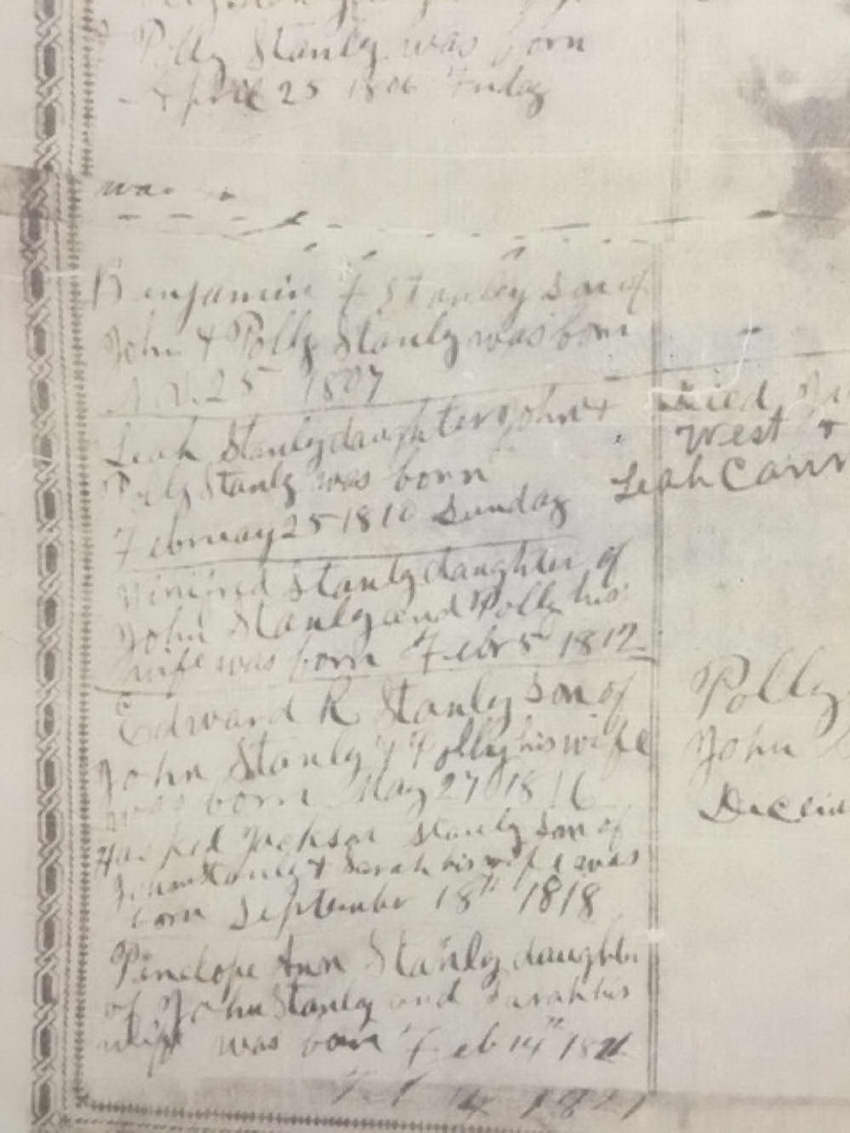 Polly Stanly was born
April 25 1806 Friday
was
Benjamin F Stanley Son of
John & Polly Stanly was born
25 1807
Leah Stanly daughter John &
Polly Stanly was born
February 25 1810 Sunday
Winifred Stanly daughter of
John Stanly and Polly his
wife was born Febr 5 1812
Edward R Stanly Son of
John Stanly & Polly his wife
was born May 27 1816
Jackson Stanly Son of
John Stanly & Sarah his wife was
born September 18th 1818
Penelope Ann Stanly daughter
of John Stanly and Sarah his
wife was born Feb 14th 1821
1821
West &
Leah Carr
Polly
John